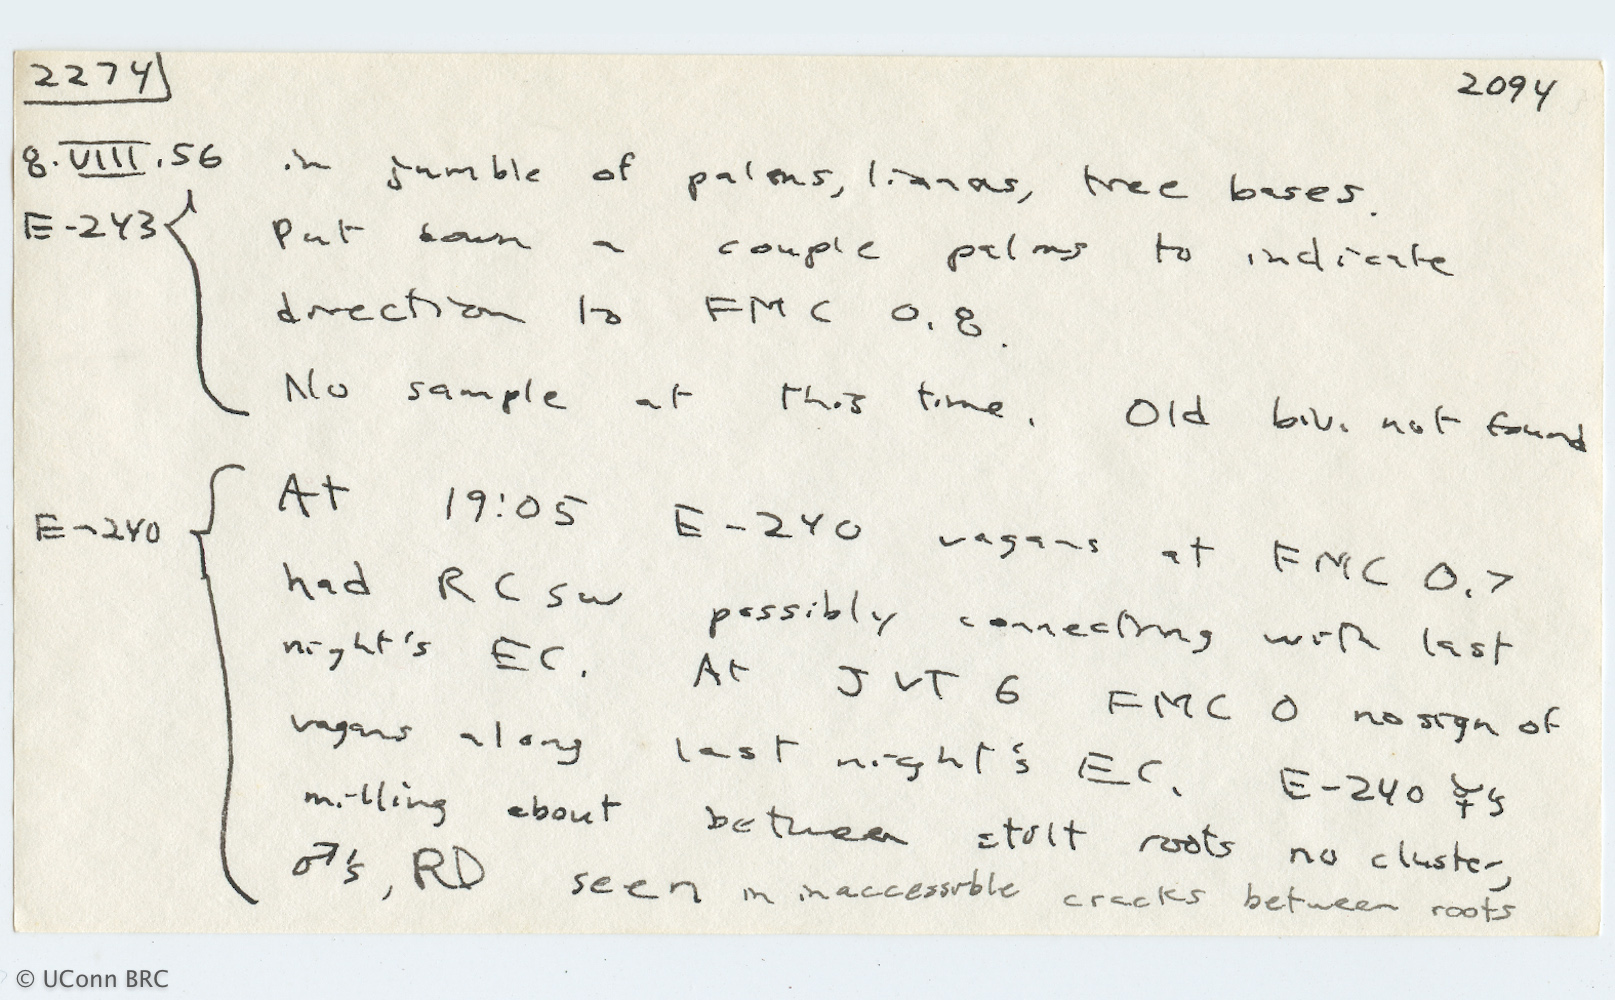 2274
2094
8.VIII.56 in jumble of palms, lianas, tree bases.
E-243 Put down a couple palms to indicate
direction to FMC 0.8.
No sample at this time. Old biv. not found
E-240 At 19:05 E-240 vagans at FMC 0.7
had RC SW possibly connecting with last
night's EC. At JVT 6 FMC 0 no sign of
vagans along last night's EC. E-240 ☿'s
milling about between stilt roots no cluster,
♂'s, RD seen in inaccessible cracks between roots
© UConn BRC